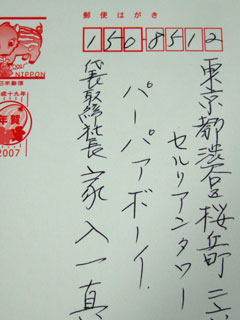 郵便はがき
150-8512
東京都渋谷区桜丘町二
セルリアンタワー
パーパァボーイ
代表取締社長 家入一真
NIPPON
日本郵便
成十九年
年賀
2007